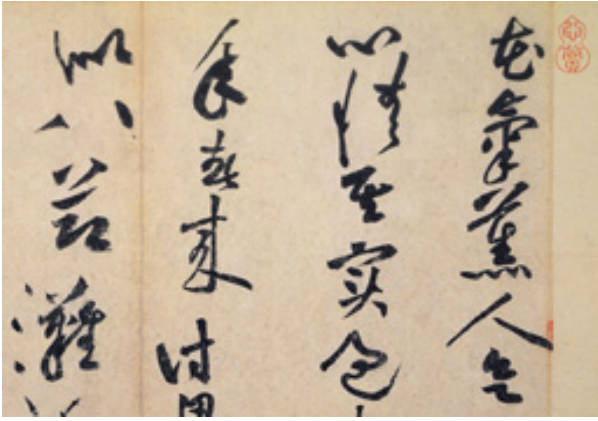 花氣薰人欲
心情其實過
年春來詩思
似八節灘